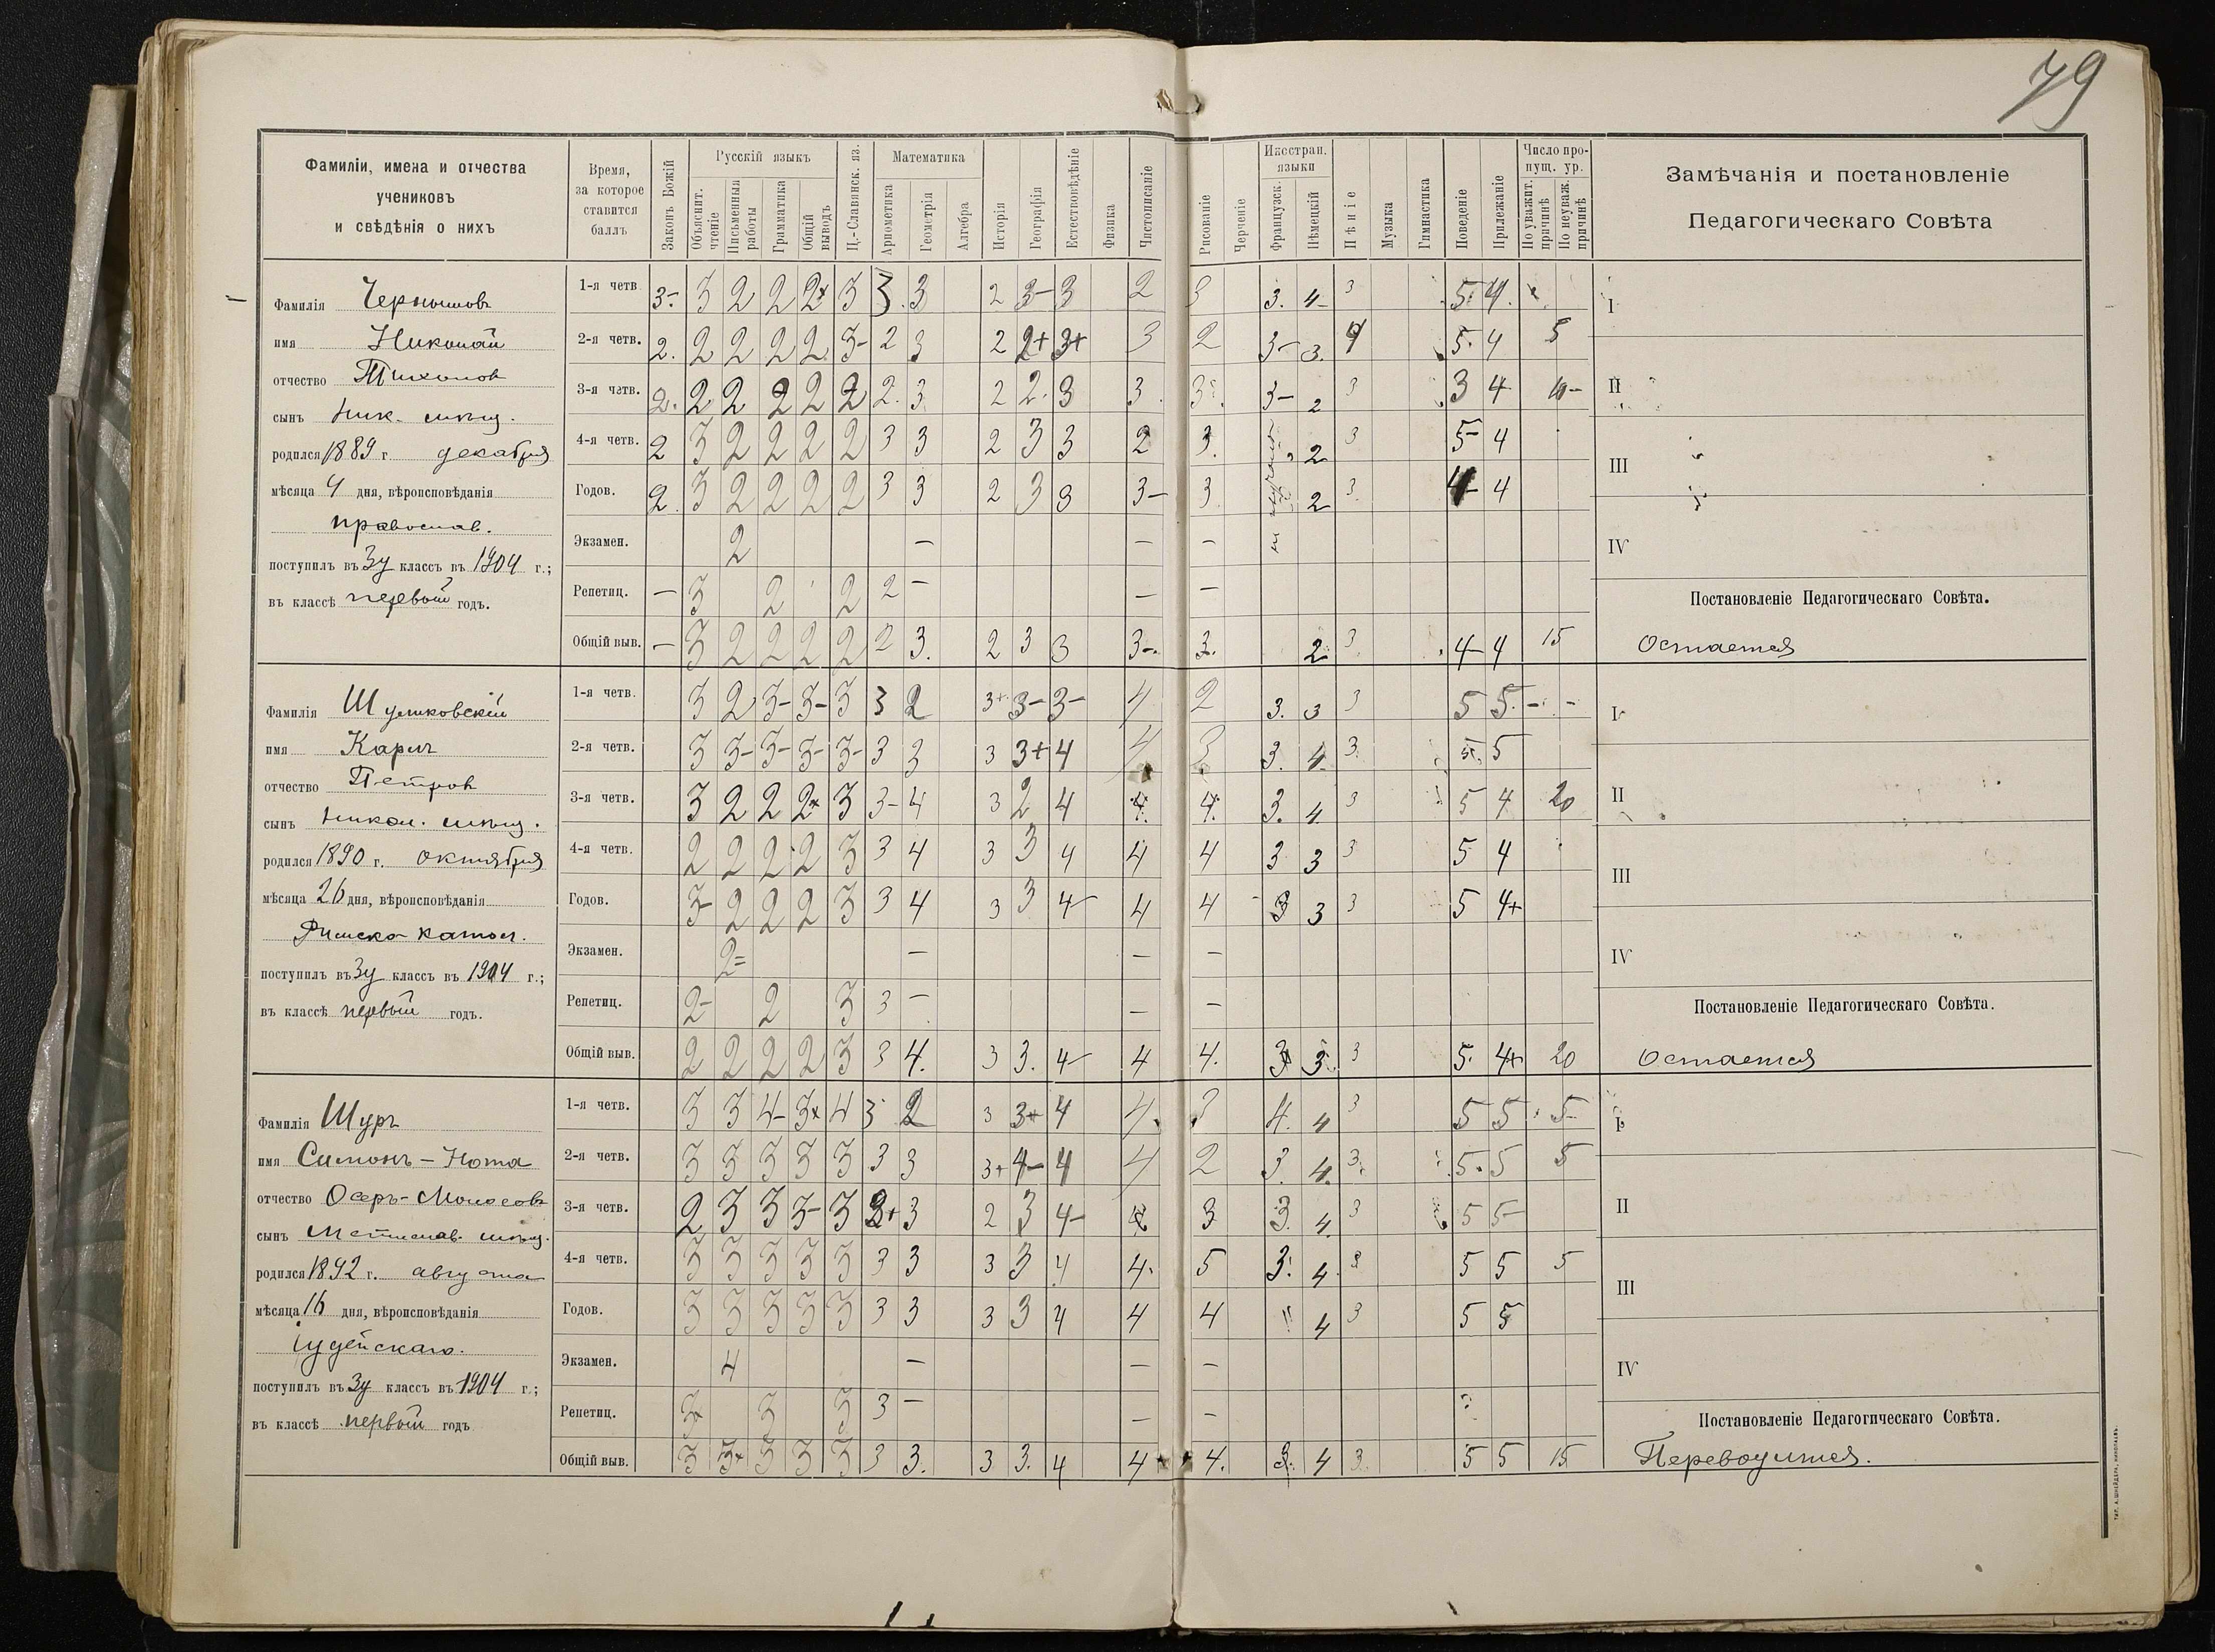 79
Фамиліи, имена и отчества
учениковъ
и свѣдѣнія о нихъ
Время,
за которое
ставится
баллъ
Законъ Божій
Русскій языкъ
Объяснит. чтеніе
Письменныя работы
Грамматика
Общій выводъ
Ц.-Славянск. яз.
Математика
Ариѳметика
Геометрія
Алгебра
Исторія
Географія
Естествовѣдѣніе
Физика
Чистописаніе
Рисованіе
Черченіе
Иностран. языки
Французск.
Нѣмецкій
Пѣніе
Музыка
Гимнастика
Поведеніе
Прилежаніе
Число пропущ. ур.
По уважит. причинѣ
По неуваж. причинѣ
Замѣчанія и постановленіе
Педагогическаго Совѣта
Фамилія Чернышовъ
имя Николай
отчество Тихоновъ
сынъ Ник. мѣщ.
родился 1889 г. декабря
мѣсяца 4 дня, вѣроисповѣданія
православ.
поступилъ въ 3й классъ въ 1904 г.;
въ классѣ первый годъ.
1-я четв. 3- 3 2 2 2+ 3 3 3 2 3- 3 2 3 3. 4- 3 5 4
2-я четв. 2. 2 2 2 2 3- 2 3 2 2+ 3+ 3 2 3- 3. 4 5 4 5
3-я четв. 2. 2 2 2 2 2 2. 3 2 2. 3 3 3 3- 2 3 3 4 10-
4-я четв. 2 3 2 2 2 2 3 3 2 3 3 2 3. 2 3 5- 4
Годов. 2 3 2 2 2 2 3 3 2 3 3 3- 3 2 3 4- 4
Экзамен. 2 — — —
Репетиц. — 3 2 2 2 — — —
Общій выв. — 3 2 2 2 2 2 3. 2 3 3 3-. 3. 2 3 4- 4 15
I
II
III
IV
Постановленіе Педагогическаго Совѣта.
Остается
Фамилія
имя Карлъ
отчество Петровъ
сынъ Никол. мѣщ.
родился 1890 г. октября
мѣсяца 26 дня, вѣроисповѣданія
Римско катол.
поступилъ въ 3й классъ въ 1904 г.;
въ классѣ первый годъ.
1-я четв. 3 2 3- 3- 3 3 2 3+ 3- 3- 4 2 3. 3 3 5 5. - -
2-я четв. 3 3- 3- 3- 3- 3 3 3 3+ 4 4 3 3. 4 3. 5 5
3-я четв. 3 2 2 2+ 3 3- 4 3 2 4 4. 4. 3. 4 3 5 4 20
4-я четв. 2 2 2 2 3 3 4 3 3 4 4 4 3 3 3 5 4
Годов. 3- 2 2 2 3 3 4 3 3 4- 4 4 3 3 3 5 4+
Экзамен. 2= — — —
Репетиц. 2- 2 3 3 — — —
Общій выв. 2 2 2 2 3 3 4. 3 3. 4- 4 4. 3 3. 3 5. 4+ 20
I
II
III
IV
Постановленіе Педагогическаго Совѣта.
Остается
Фамилія Шуръ
имя Симонъ-Нота
отчество Осеръ-Моисеовъ
сынъ Мстислав. мѣщ.
родился 1892 г. августа
мѣсяца 16 дня, вѣроисповѣданія
Іудейскаго.
поступилъ въ 3й классъ въ 1904 г.;
въ классѣ первый годъ
1-я четв. 3 3 4- 3+ 4 3 2 3 3+ 4 4. 3 4. 4 3 5 5 5
2-я четв. 3 3 3 3 3 3 3 3+ 4- 4 4 2 3. 4. 3. 5. 5 5
3-я четв. 2 3 3 3- 3 3+ 3 2 3 4- 4 3 3. 4. 3 5 5
4-я четв. 3 3 3 3 3 3 3 3 3 4 4. 5 3. 4 3 5 5 5
Годов. 3 3 3 3 3 3 3 3 3 4 4 4 " 4 3 5 5
Экзамен. 4 — — —
Репетиц. 3+ 3 3 3 — — —
Общій выв. 3 3+ 3 3 3 3 3. 3 3. 4 4 4. 3. 4 3. 5 5 15
I
II
III
IV
Постановленіе Педагогическаго Совѣта.
Переводится.
ТИП. А. ШНЕЙДЕРА, НИКОЛАЕВЪ.